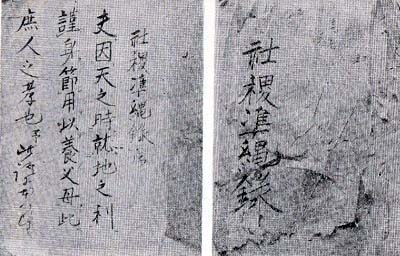 社稷準縄録
社稷準縄録
夫因天之時就地之利
謹身節用以養父母此
庶人之孝也